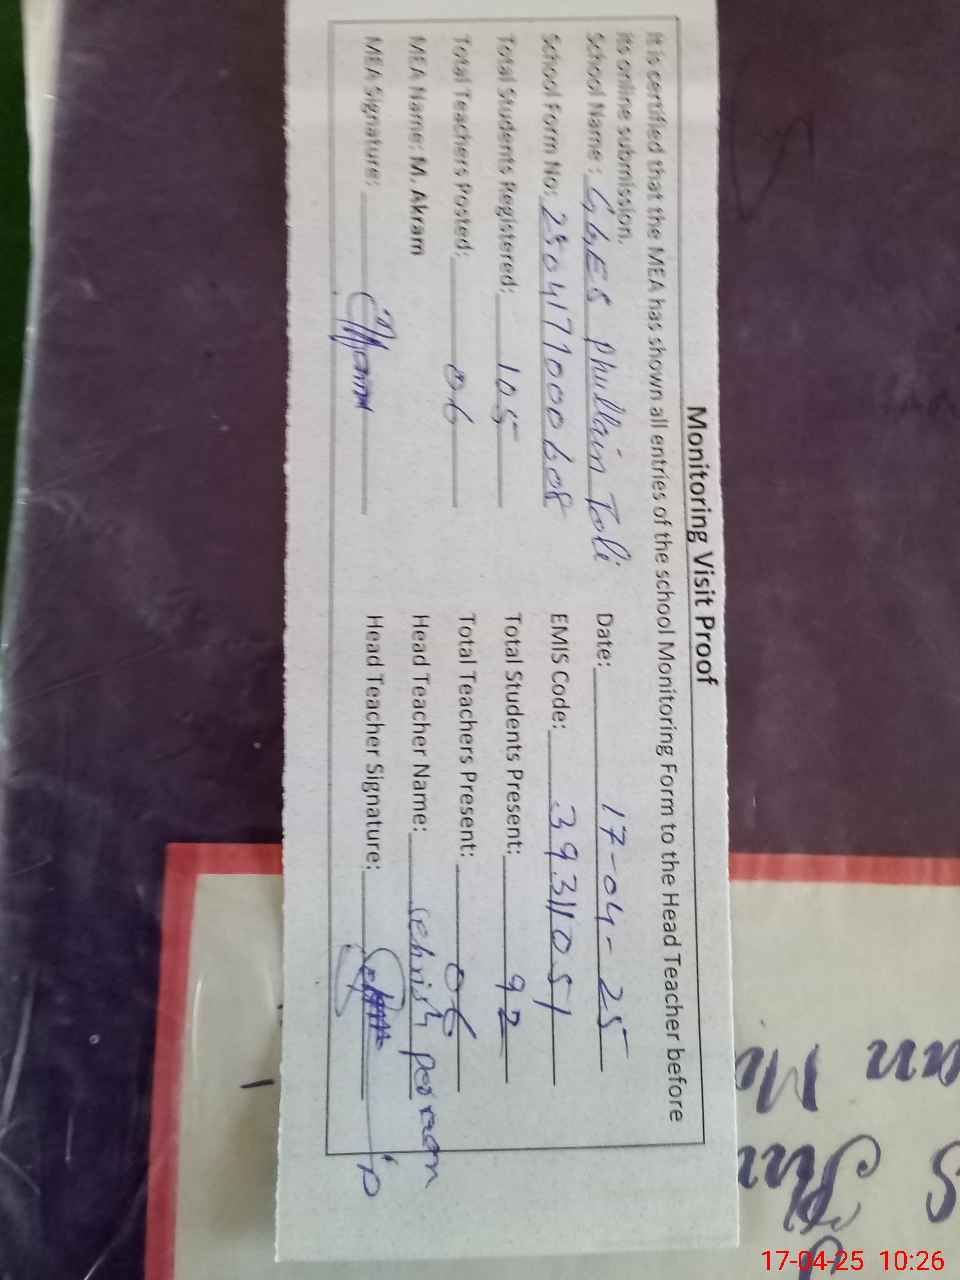 Monitoring Visit Proof
It is certified that the MEA has shown all entries of the school Monitoring Form to the Head Teacher before
its online submission.
School Name: GGES Phullain Toli Date: 17-04-25
School Form No: 2504171000608 EMIS Code: 39311051
Total Students Registered: 105 Total Students Present: 92
Total Teachers Posted: 06 Total Teachers Present: 06
MEA Name: M. Akram Head Teacher Name:
MEA Signature: Head Teacher Signature:
17-04-25 10:26